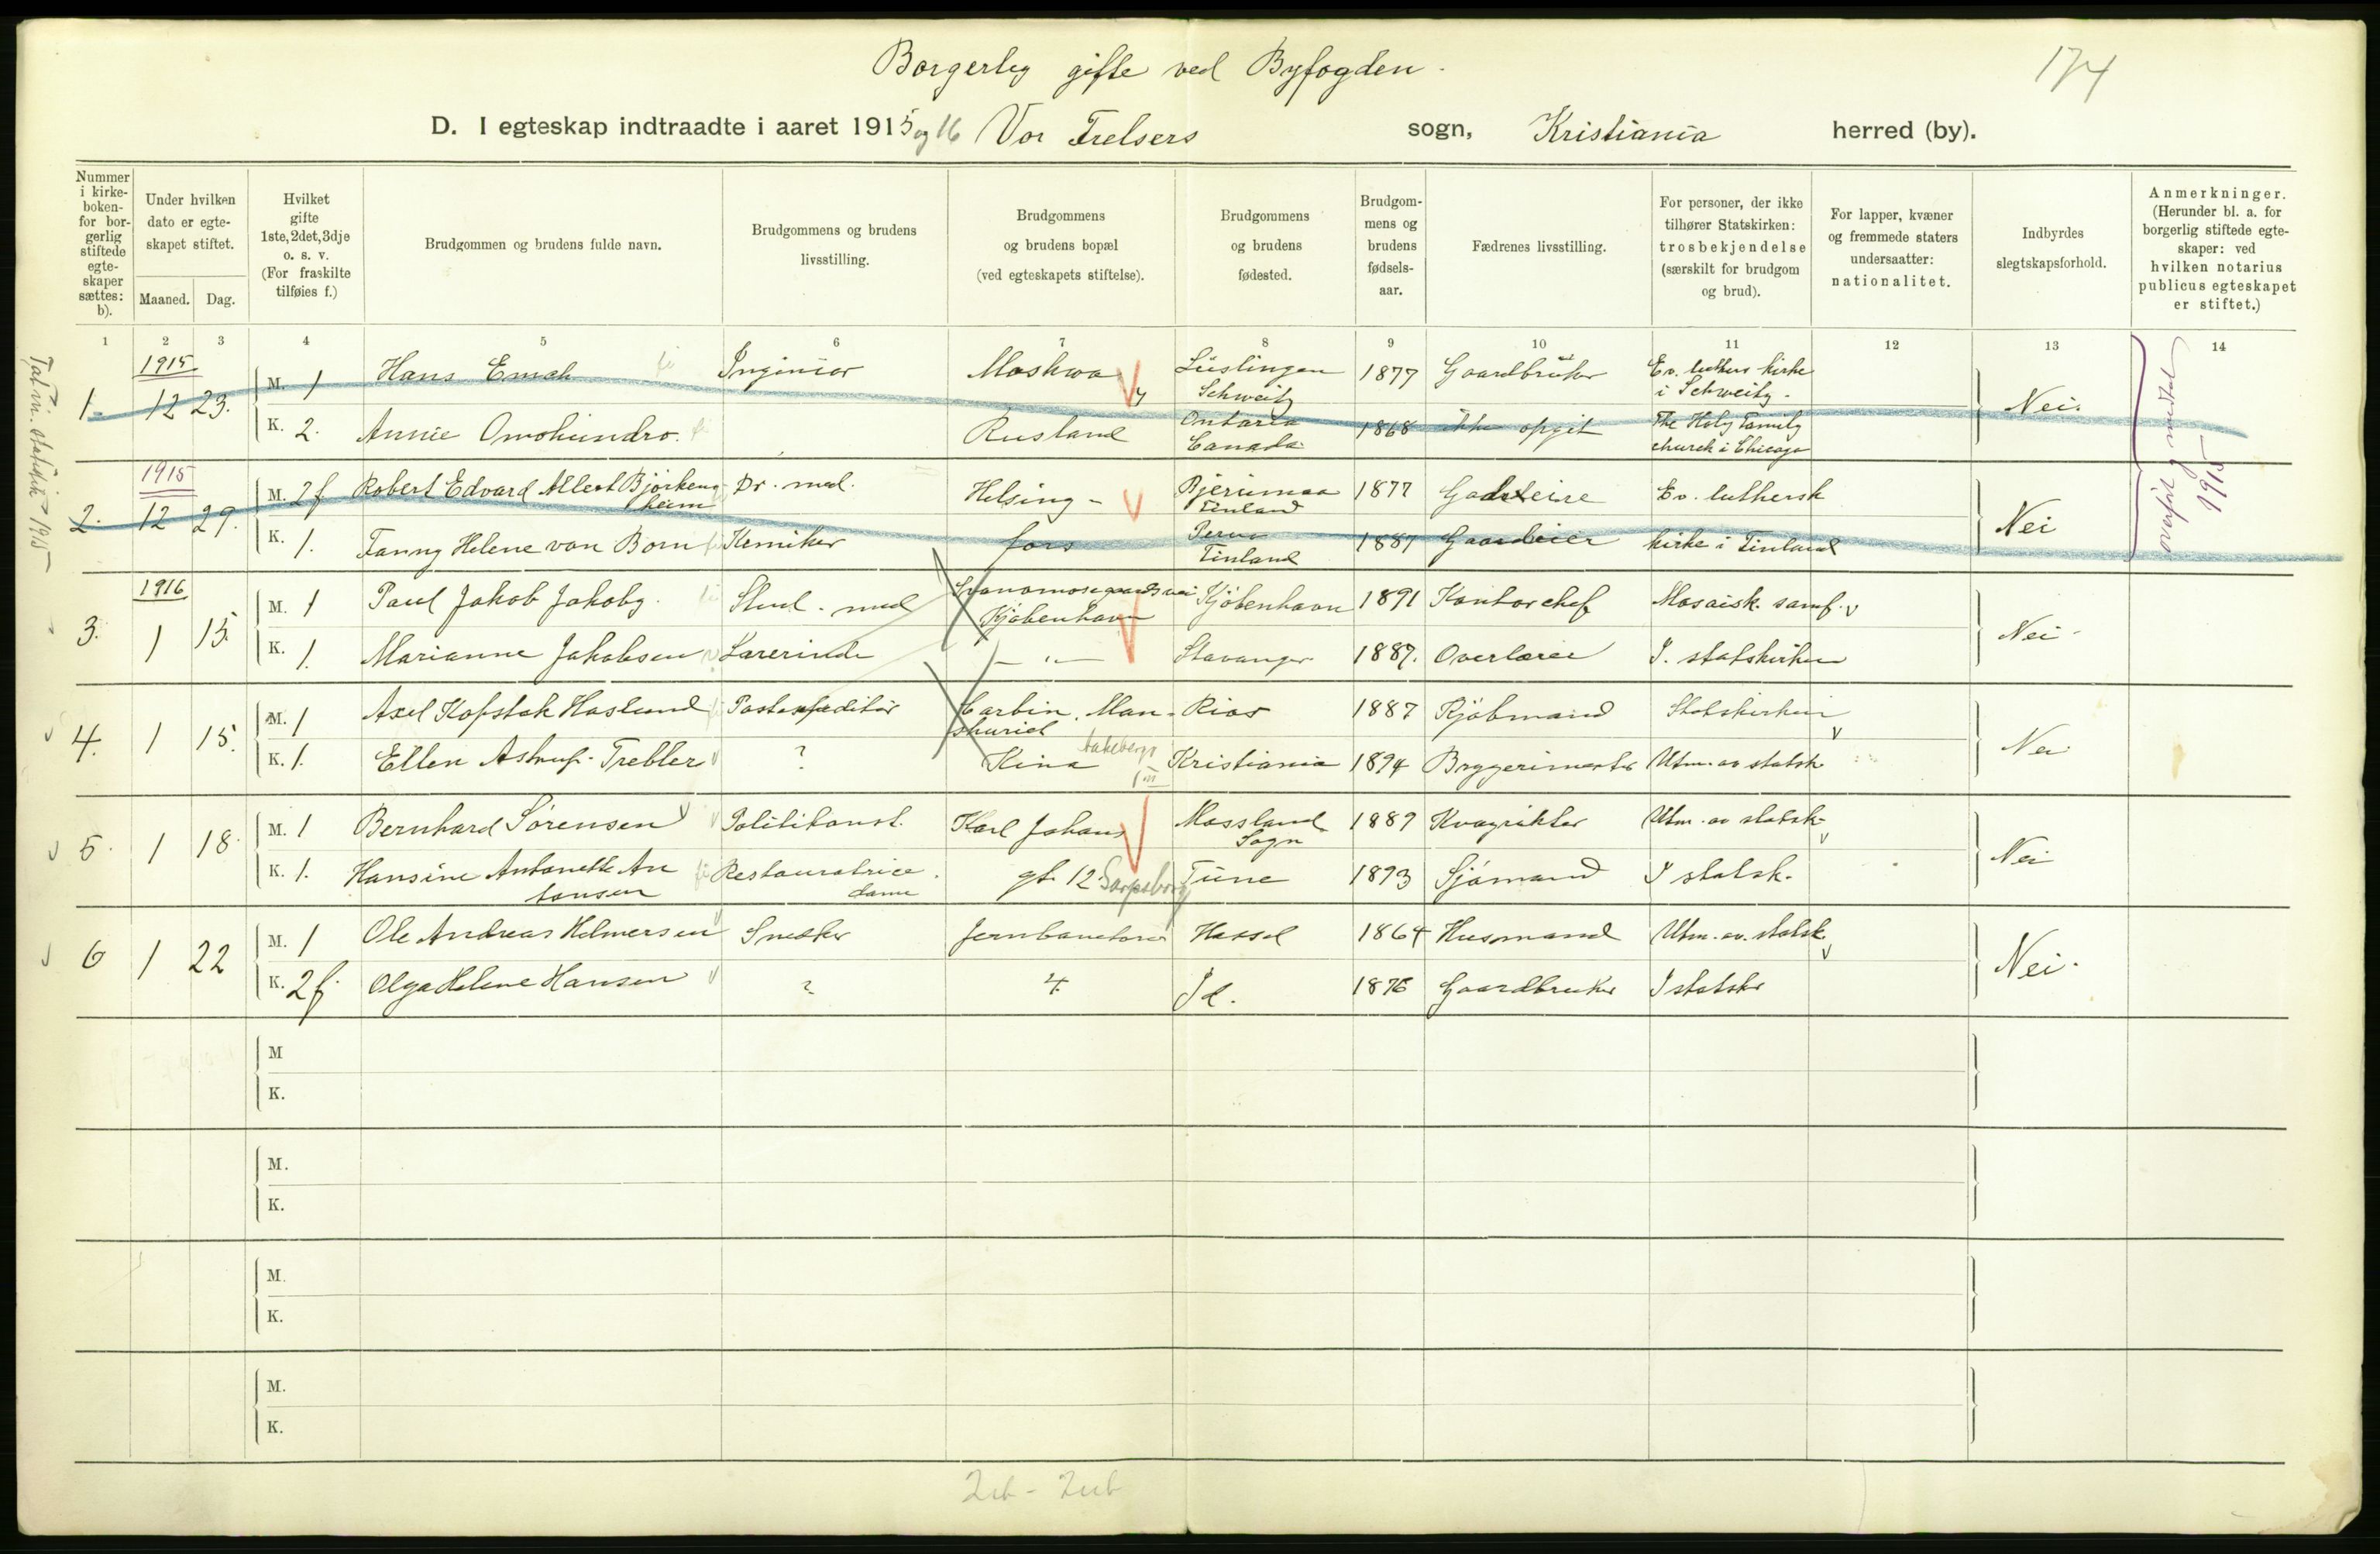 Borgerlig gifte ved Byfogden.
174
D. I egteskap indtraadte i aaret 1915 og 16 Vor Frelsers sogn, Kristiania herred (by).
Nummer i kirke-boken- for bor-gerlig stiftede egte-skaper sættes: b).
Under hvilken dato er egte-skapet stiftet.
Maaned. Dag.
Hvilket gifte 1ste, 2det, 3dje o. s. v. (For fraskilte tilføies f.)
Brudgommen og brudens fulde navn.
Brudgommens og brudens livsstilling.
Brudgommens og brudens bopæl (ved egteskapets stiftelse).
Brudgommens og brudens fødested.
Brudgom-mens og brudens fødsels-aar.
Fædrenes livsstilling.
For personer, der ikke tilhører Statskirken: trosbekjendelse (særskilt for brudgom og brud).
For lapper, kvæner og fremmede staters undersaatter: nationalitet.
Indbyrdes slegtskapsforhold.
Anmerkninger. (Herunder bl. a. for borgerlig stiftede egte-skaper: ved hvilken notarius publicus egteskapet er stiftet.)
1 2 3 4 5 6 7 8 9 10 11 12 13 14
1915
1. 12 23. M. 1 Hans Emch Ingeniør Moskwa Lüslingen Schweitz 1877 Gaardbruker Ev. luthers kirke i Schweitz. Nei.
K. 2. Annie Omohundro. Rusland Ontario Canada. 1868 ikke opgit The Holy Family church i Chicago
1915
2. 12 29. M. 2 f Robert Edvard Albert Björken-heim Dr. med. Helsing- Bjerimaa Finland 1877 Godseier Ev. luthersk Nei
K. 1. Fanny Helene von Born Kemiker fors Perno Finland 1887 Gaardeier kirke i Finland
1915
1916
3. 1 15. M. 1 Paul Jakob Jakoby. Stud. med Svanemosegaardsvei Kjöbenhavn Kjöbenhavn 1891 Kontorchef Mosaisk. samf. Nei
K. 1. Marianne Jakobsen Lærerinde — " — Stavanger 1887. Overlærer I. statskirken
4. 1 15. M. 1 Axel Kofstak Haslund Postexpeditör Carbin. Man-shuriet Risør 1887 Kjöbmand Statskirken Nei
K. 1. Ellen Astrup-Trebler ? Kina Kristiania 1894 Bryggerimester Utm. av statsk.
5. 1 18. M. 1 Bernhard Sörensen Politikonst. Karl Johans Sogn 1889 Kvægrökter Utm. av statsk. Nei
K. 1. Hansine Antonette An-tonsen Restauratrice dame gt. 12 Sarpsborg Tune 1893 Sjömand I statsk.
6 1 22 M. 1 Ole Andreas Helmersen Snedker Jernbanetorvet Hassel 1864 Husmand Utm. av. statsk. Nei.
K. 2 f. Olga Helene Hansen ? 4. Id. 1876 Gaardbruker I statsk
M K.
M. K.
M. K.
M. K.